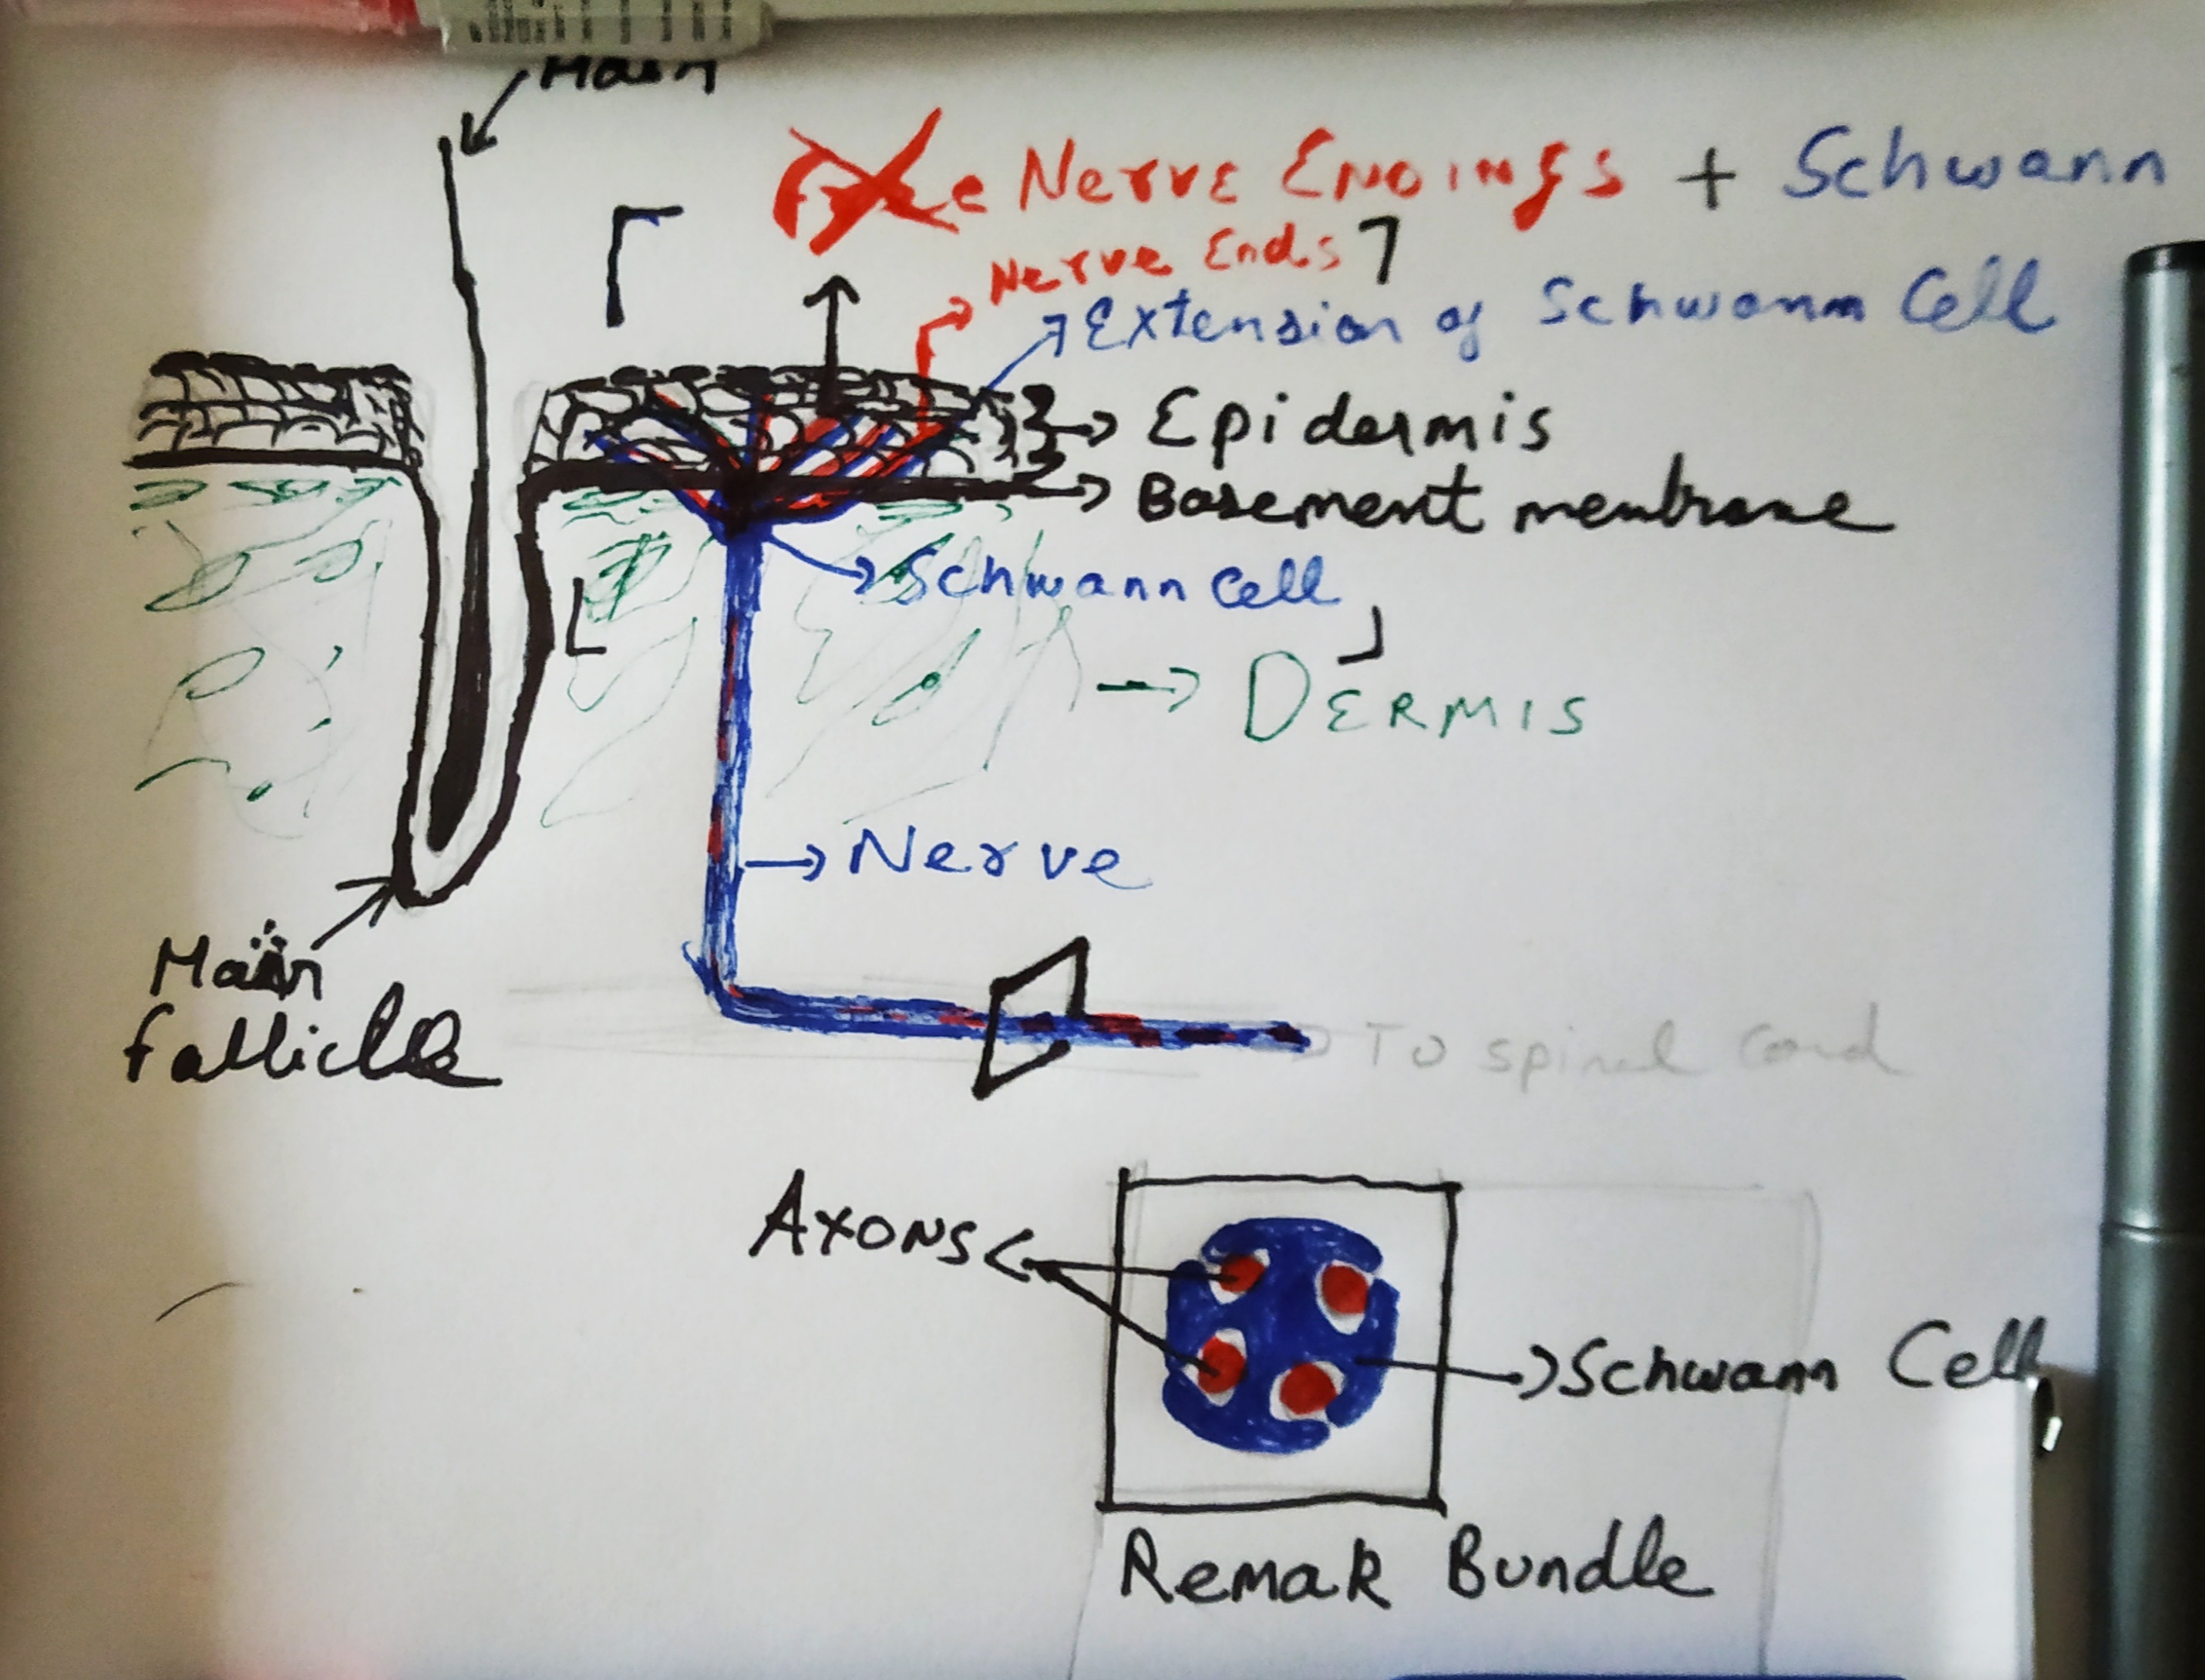 Hair
Free Nerve Endings + Schwann
Nerve Ends
Extension of Schwann Cell
Epidermis
Basement membrane
Schwann Cell
DERMIS
Nerve
Hair
follicle
To spinal cord
AXONS
Schwann Cell
Remak Bundle